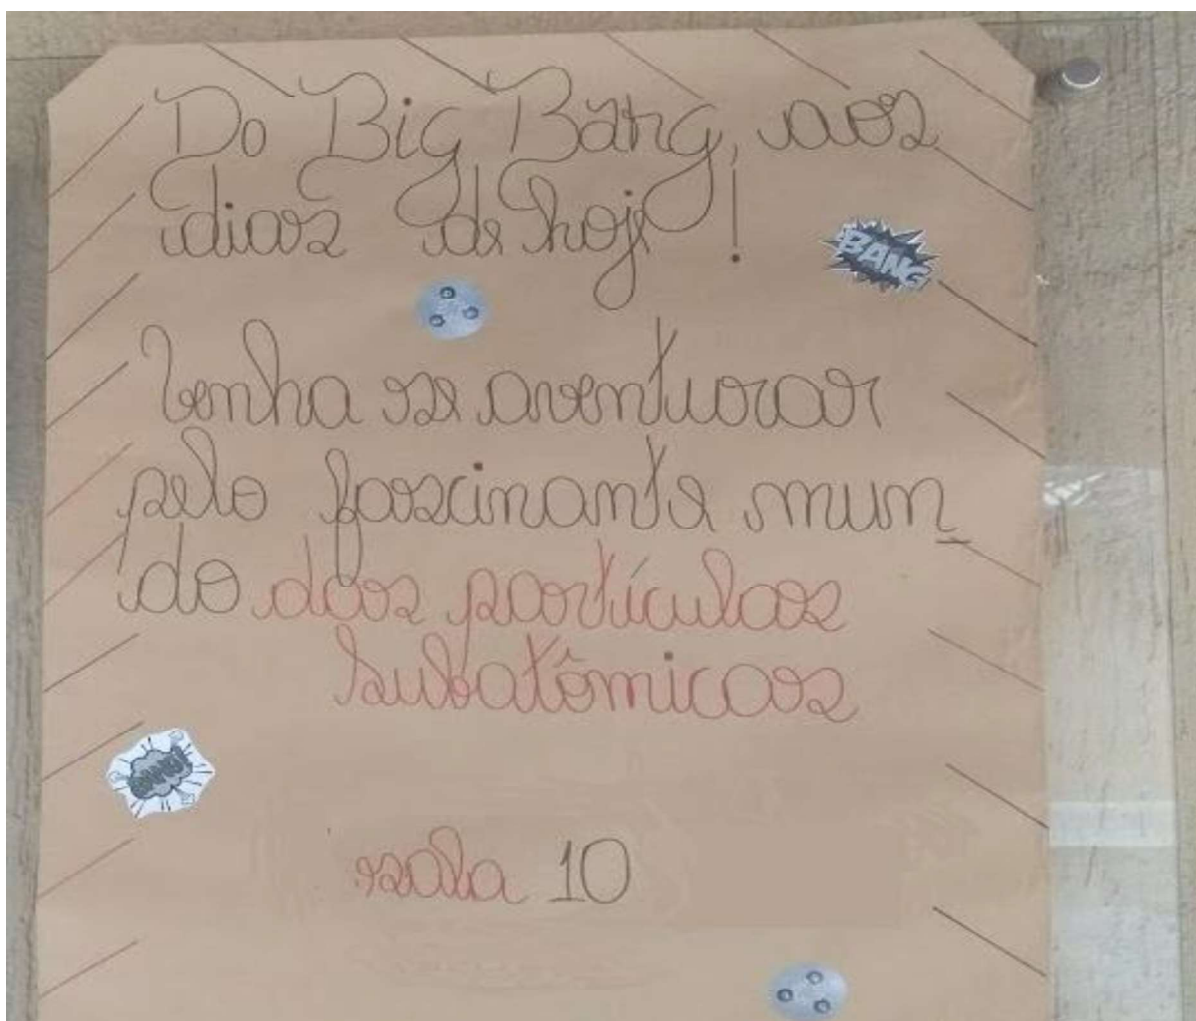 Do Big Bang, aos
dias de hoje!
BANG
Venha se aventurar
pelo fascinante mun_
do das partículas
subatômicas
BANG!
sala 10